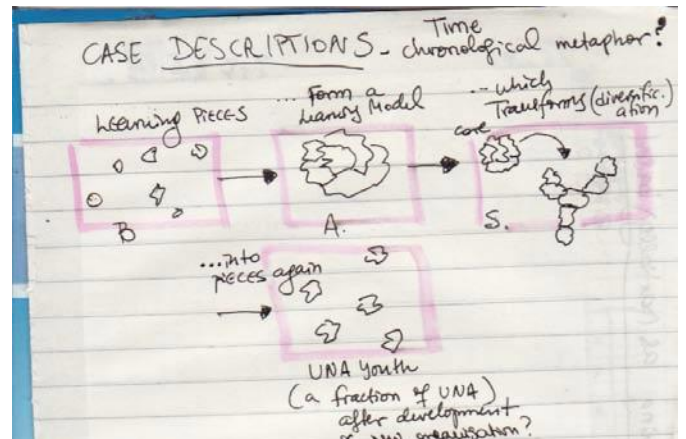 Time
CASE DESCRIPTIONS - chronological metaphor?
Learning PIECES
... Form a
Learning Model
... which
Transforms (diversific.
ation)
core
B
A.
S.
... into
PIECES again
UNA Youth
(a fraction of UNA)
after development
organisation?